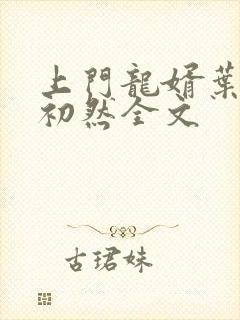 上門龍婿葉
初然全文
古珺妹